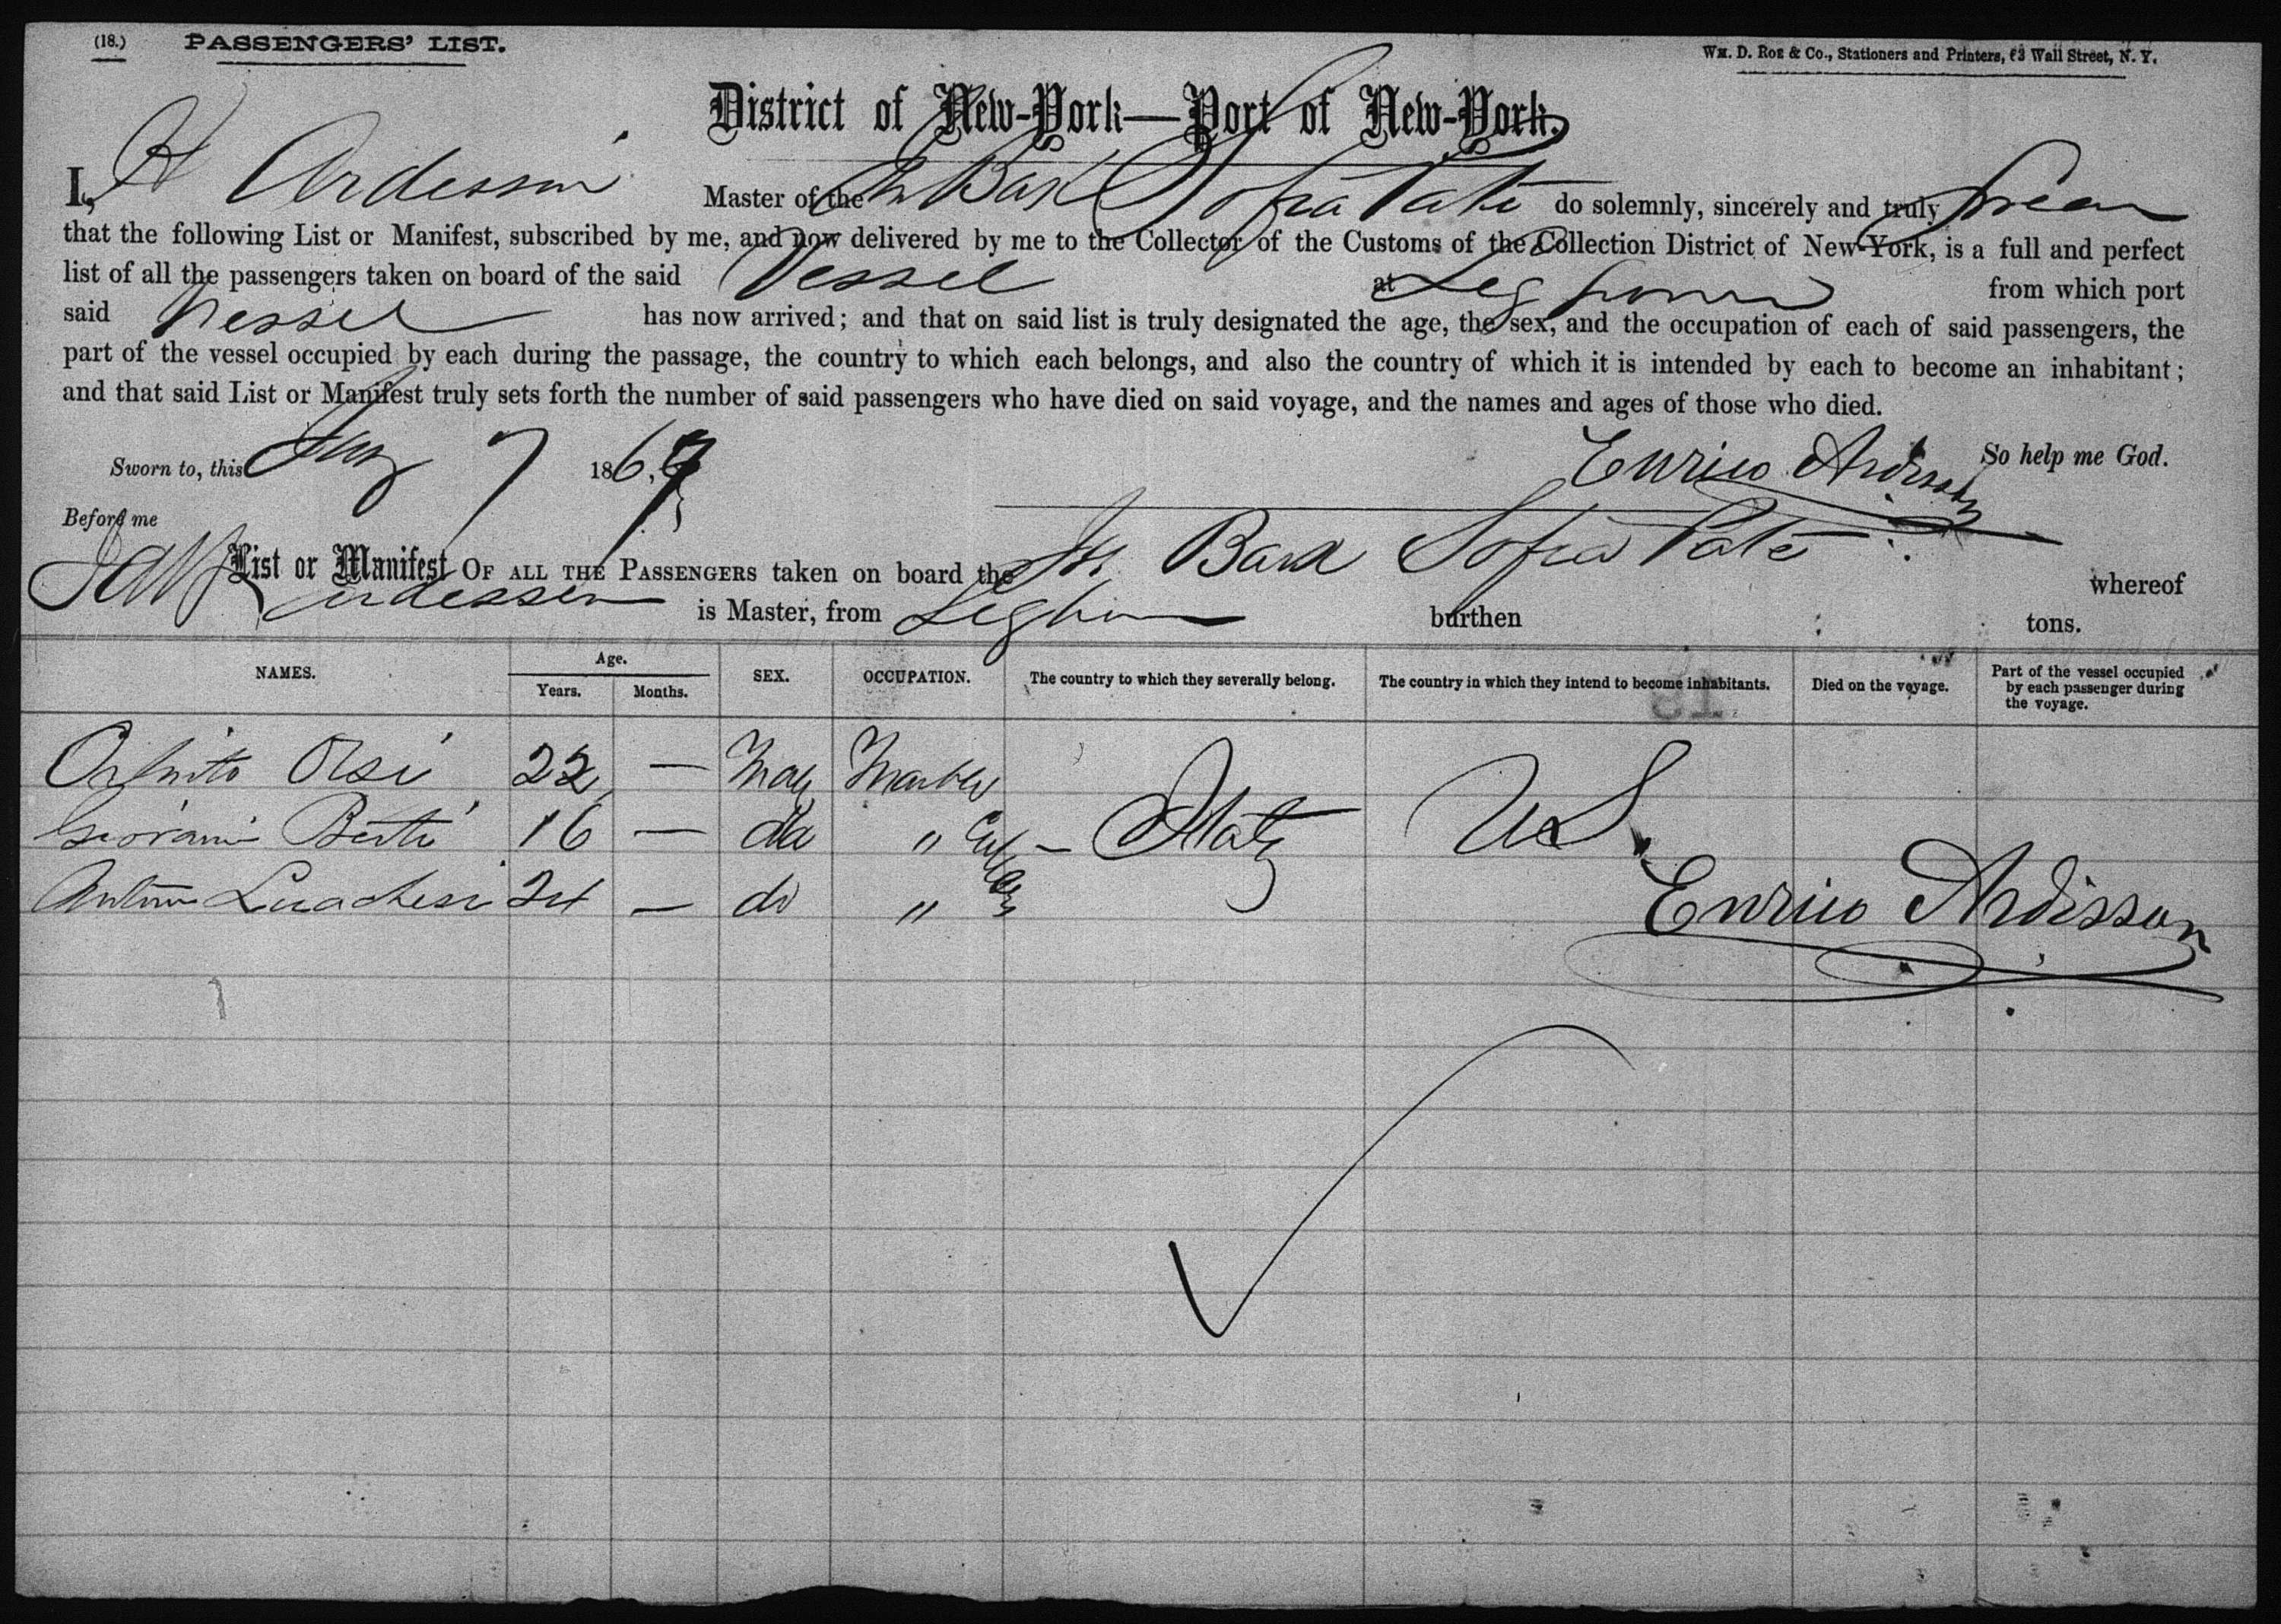 (18.) PASSENGERS' LIST.
WM. D. ROE & Co., Stationers and Printers, 63 Wall Street, N. Y.
District of New-York—Port of New-York.
I, H Ardesson Master of the Bark Sofia Pate do solemnly, sincerely and truly swear
that the following List or Manifest, subscribed by me, and now delivered by me to the Collector of the Customs of the Collection District of New-York, is a full and perfect
list of all the passengers taken on board of the said Vessel at Leghorn from which port
said Vessel has now arrived; and that on said list is truly designated the age, the sex, and the occupation of each of said passengers, the
part of the vessel occupied by each during the passage, the country to which each belongs, and also the country of which it is intended by each to become an inhabitant;
and that said List or Manifest truly sets forth the number of said passengers who have died on said voyage, and the names and ages of those who died.
Sworn to, this 7 1867 Enrico Ardisson So help me God.
Before me
List or Manifest OF ALL THE PASSENGERS taken on board the Bark Sofia Pate whereof
Ardesson is Master, from Leghorn burthen tons.
NAMES. Age. Years. Months. SEX. OCCUPATION. The country to which they severally belong. The country in which they intend to become inhabitants. Died on the voyage. Part of the vessel occupied by each passenger during the voyage.
Orsi 22 — Male Marble
Giovanni Berti 16 — do " Cutters — Italy US
Antonio Luachesi 24 — do "
Enrico Ardisson